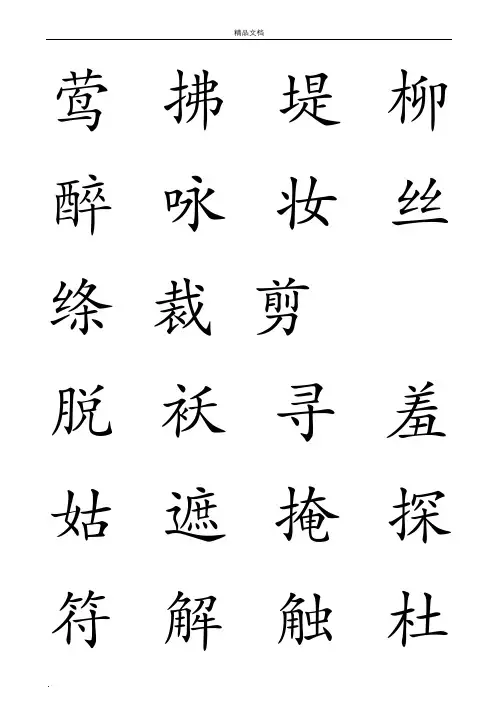 精品文档
莺 拂 堤 柳
醉 咏 妆 丝
绦 裁 剪
脱 袄 寻 羞
姑 遮 掩 探
符 解 触 杜
.